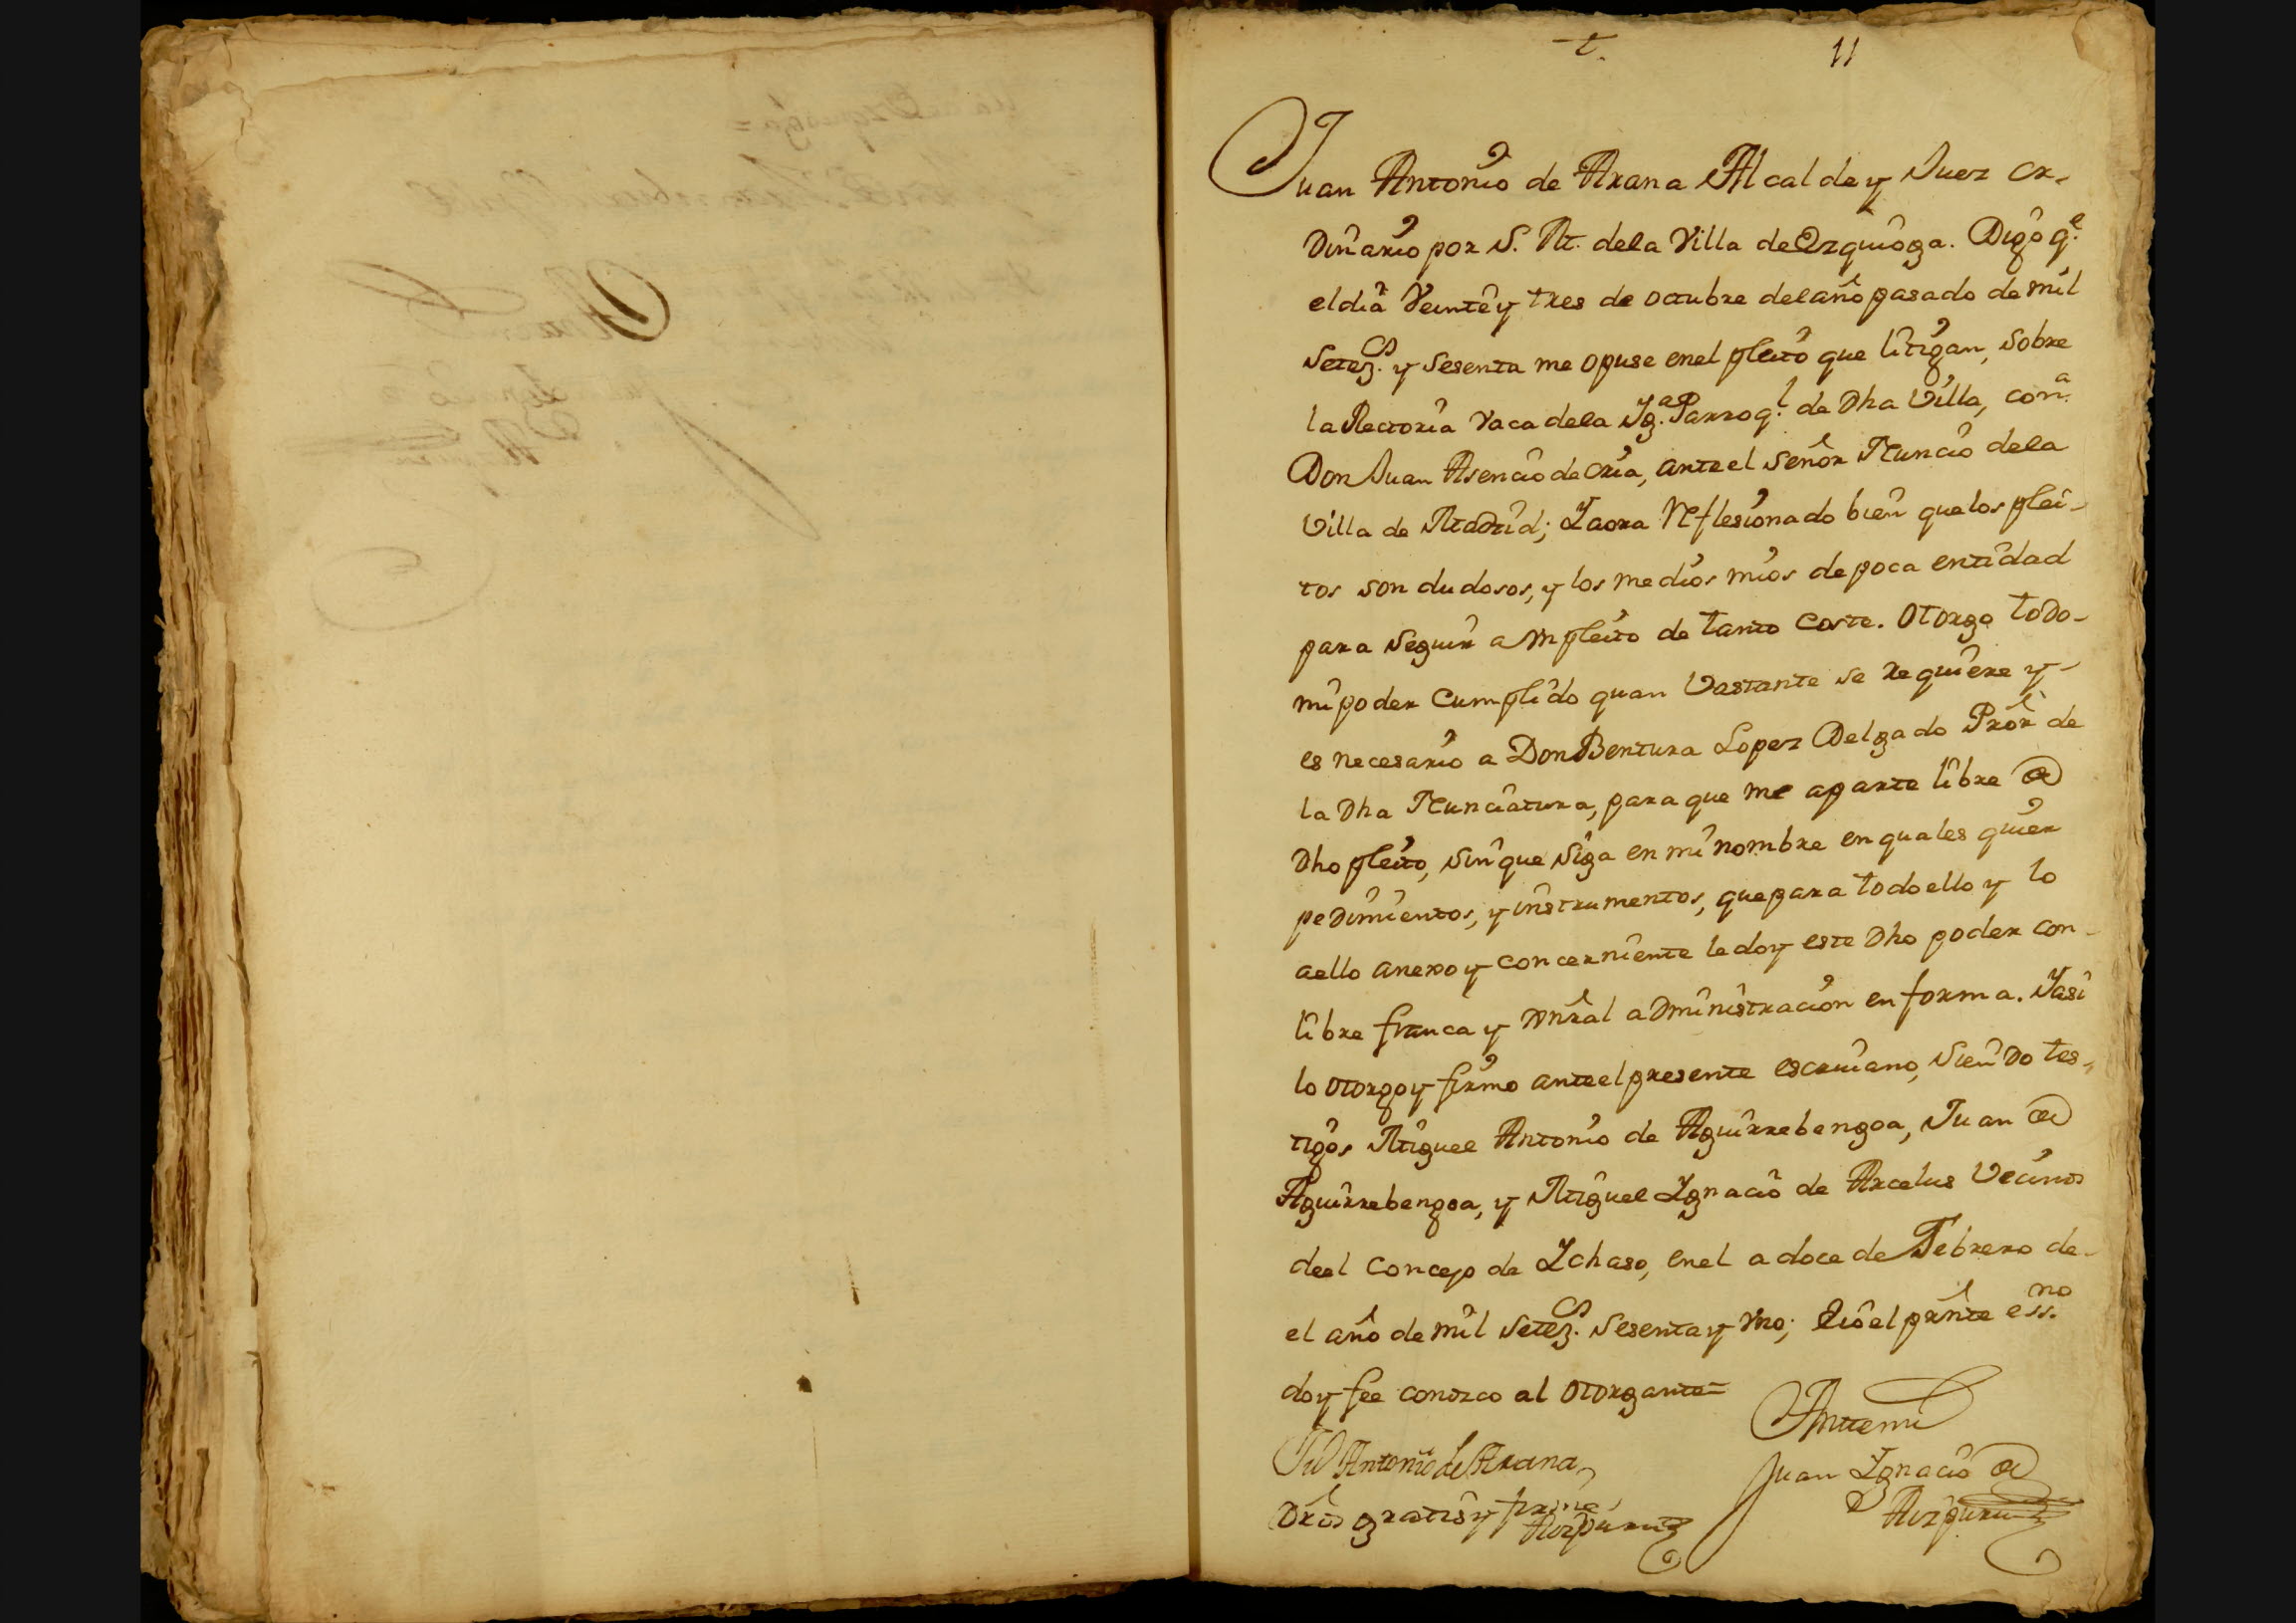 t. 11
Juan Antonio de Arana Alcalde y Juez or-
dinario por S. M. dela Villa de Ezquioga. Digo q.e
el dia Veinte y tres de octubre del año pasado de mil
setez.s y sesenta me opuse enel pleito que litigan, sobre
la Rectoria Vaca dela Ig.a Parroq.l de dha Villa, con.a
Don Juan Asencio de oria, ante el señor Nuncio dela
Villa de Madrid; Y aora Reflesionado bien que los plei-
tos son dudosos, y los medios mios de poca entidad
para seguir a un pleito de tanto coste. Otorgo todo-
mi poder Cumplido quan Vastante se requiere y-
es necesario a Don Bentura Lopez Delgado Prór de
la dha Nunciatura, para que me aparte libre de
dho pleito, sin que siga en mi nombre en quales quier
pedimientos, y instrumentos, que para todo ello y lo
aello anexo y concerniente le doy este dho poder con-
libre franca y gnral administracion en forma. Y asi
lo otorgo y firmo ante el presente escriuano, siendo tes-
tigos Miguel Antonio de Aguirrebengoa, Juan de
Aguirrebengoa, y Miguel Ignacio de Arcelus Vecinos
de el Concejo de Ichaso, en el a doce de Febrero de-
el año de mil setez.s sesenta y uno; E io el prnte ess.no
doy fee conozco al otorgante=
Ju Antonio de Arana
Ante mi
Juan Ignacio de
Aizpuru
Drôs gratis y firmé
Aizpuru